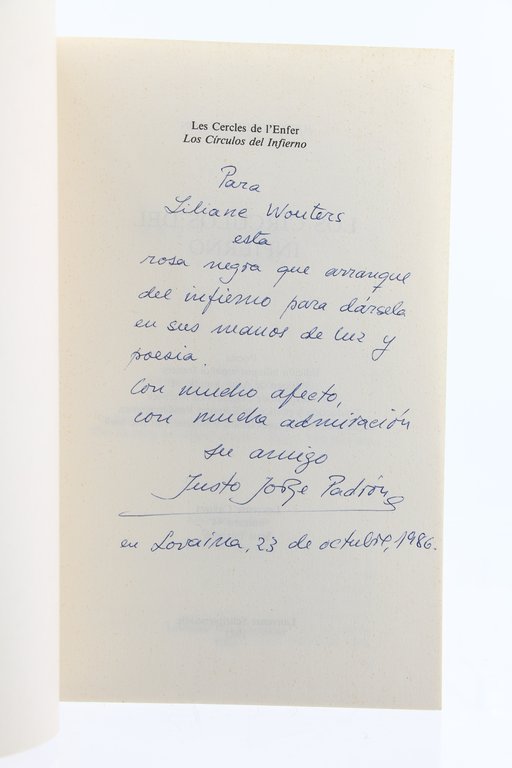 Les Cercles de l'Enfer
Los Círculos del Infierno
Para
Liliane Wouters
esta
rosa negra que arranque
del infierno para dársela
en sus manos de luz y
poesia.
Con mucho afecto,
con mucha admiración
su amigo
Justo Jorge Padrón
en Lovaina, 23 de octubre, 1986.